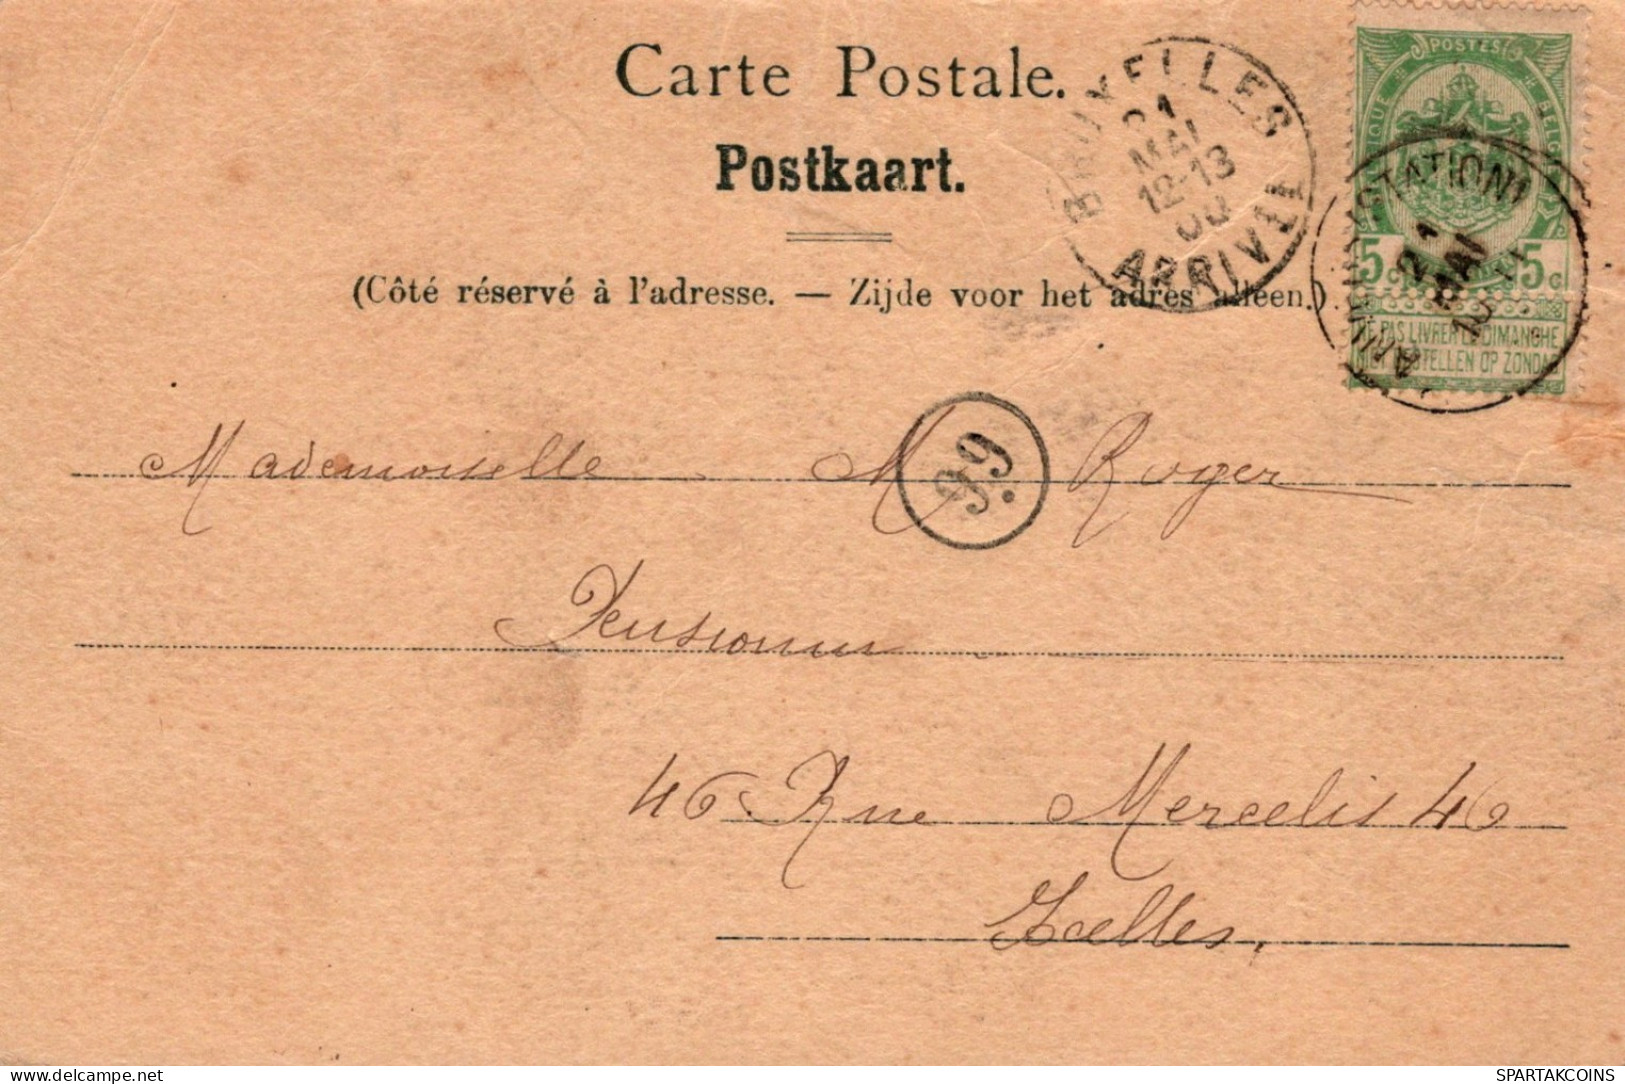 Carte Postale.
Postkaart.
(Côté réservé à l'adresse. — Zijde voor het adres alleen.)
BRUXELLES
21
MAI
12-13
00
ARRIVÉE
POSTES
BELGIQUE
5c 5c
NE PAS LIVRER LE DIMANCHE
NIET BESTELLEN OP ZONDAG
(STATION)
21
MAI
99
Mademoiselle M Roger
46 Rue Mercelis 46
Ixelles.
delcampe.net
SPARTAKCOINS